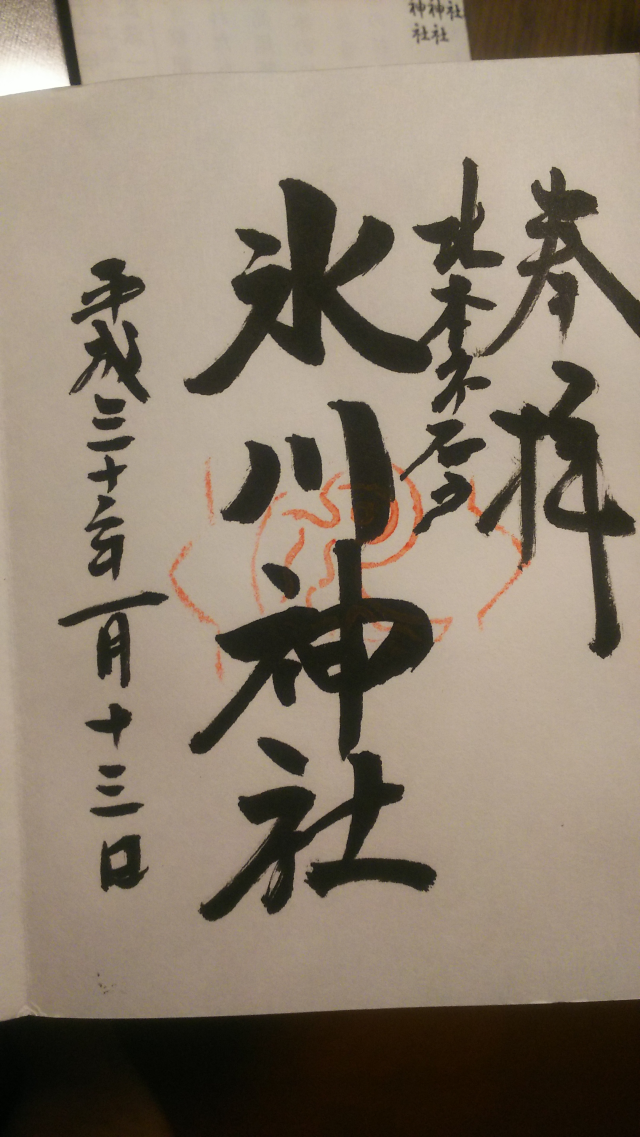 社
神社
神社
奉拝
北本市石戸
氷川神社
平成三十一年一月十三日